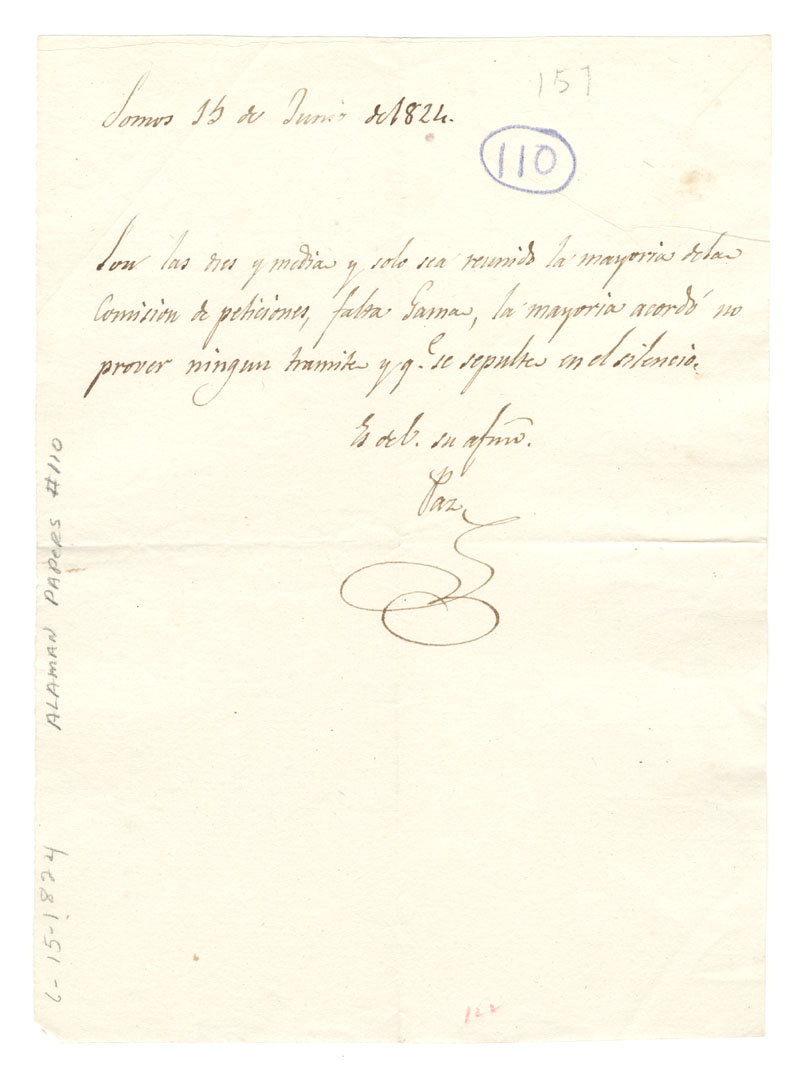 157
Somos 15 de Junio de 1824.
110
Son las tres y media y solo sea reunido la mayoria dela
Comision de peticiones, falta Gama, la mayoria acordó no
prover ningun tramite y q.e se sepulte en el silencio.
Es de V. su afmo.
Paz
ALAMAN PAPERS #110
6-15-1824
122